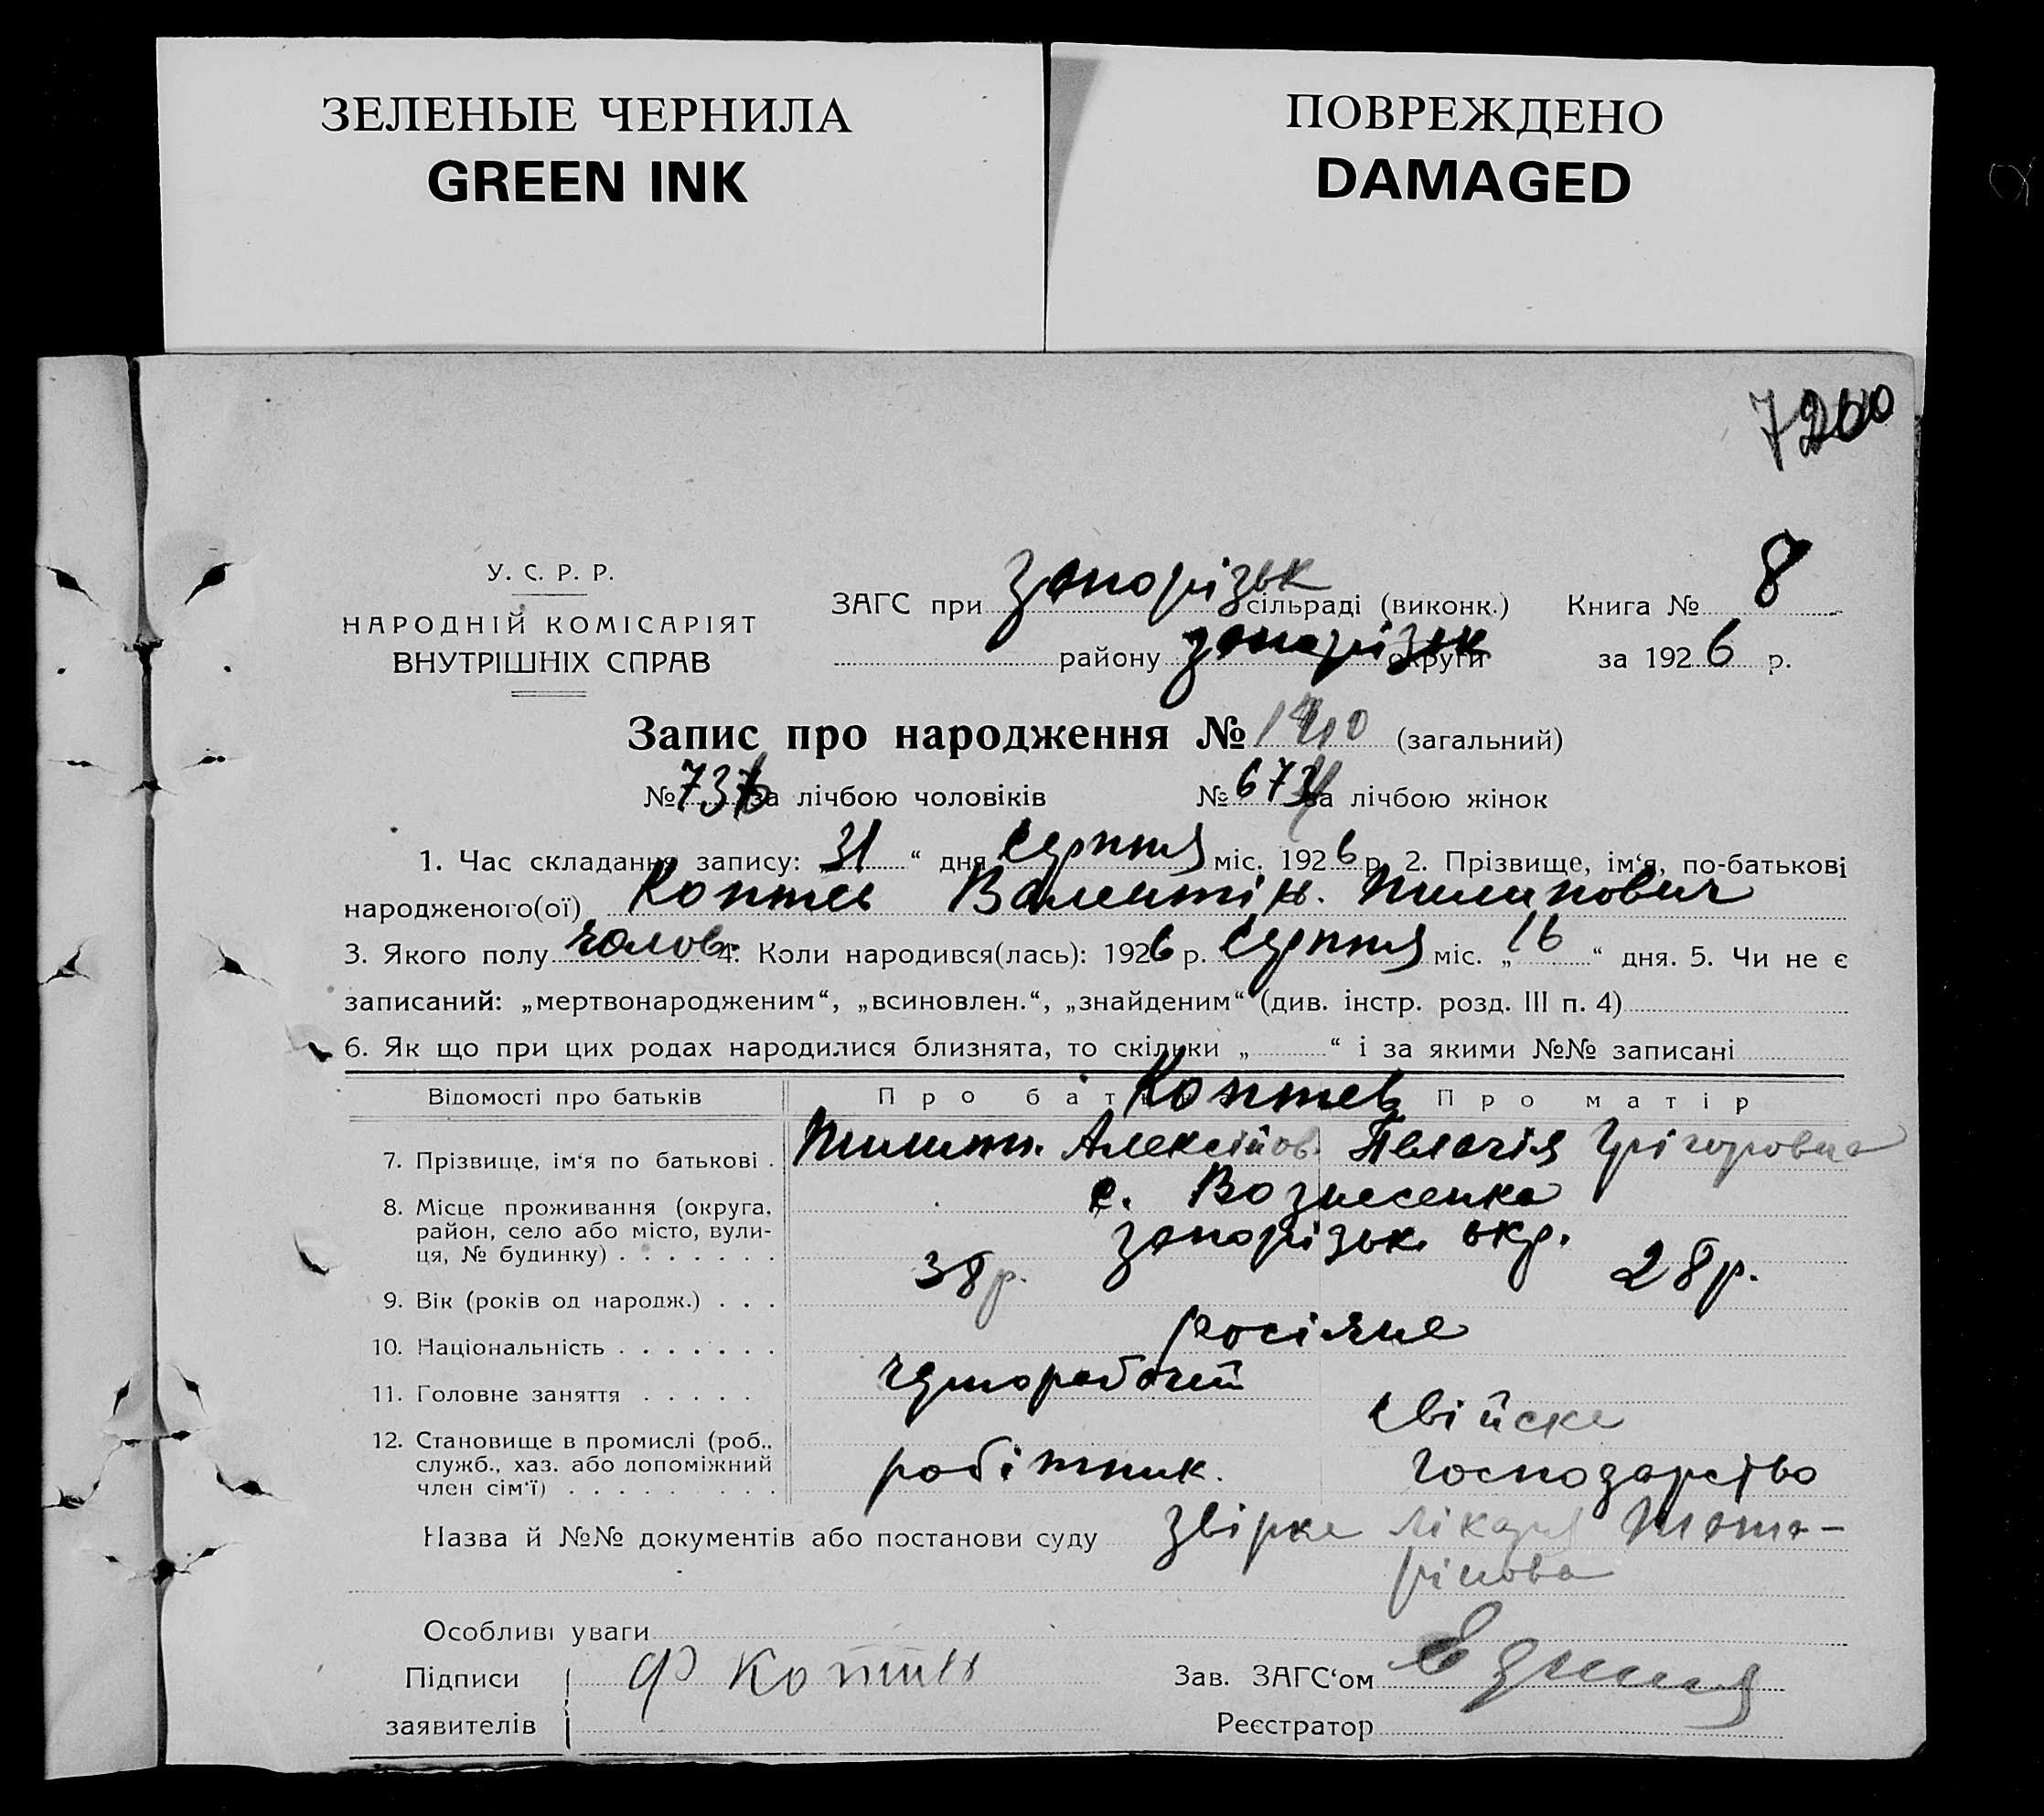 ЗЕЛЕНЫЕ ЧЕРНИЛА
GREEN INK
ПОВРЕЖДЕНО
DAMAGED
7200
У. С. Р. Р.
НАРОДНІЙ КОМІСАРІЯТ
ВНУТРІШНІХ СПРАВ
ЗАГС при Запорізьк сільраді (виконк.) Книга № 8
району Запорізьк округи за 1926 р.
Запис про народження № (загальний)
№ 736 за лічбою чоловіків № 674 за лічбою жінок
1. Час складання запису: 31 “ дня Серпня міс. 1926 р. 2. Прізвище, ім‘я, по-батькові
народженого(ої) Коптев Валентін. Пилипович
3. Якого полу чолов. 4. Коли народився(лась): 1926 р. Серпня міс. „ 16 “ дня. 5. Чи не є
записаний: „мертвонародженим“, „всиновлен.“, „знайденим“ (див. інстр. розд. III п. 4)
6. Як що при цих родах народилися близнята, то скільки „ “ і за якими №№ записані
Відомості про батьків Про бат Коптев Про матір
7. Прізвище, ім‘я по батькові . Пилип. Алексійов. Пелагія Грігоровна
8. Місце проживання (округа, с. Вознесенка
район, село або місто, вули- Запорізьк. окр.
ця, № будинку) . . . . . . .
9. Вік (років од народж.) . . . 38 р. 28 р.
10. Національність . . . . . . . росіяне
11. Головне заняття . . . . . чорноробочий свійске
12. Становище в промислі (роб., робітник. господарство
служб., хаз. або допоміжний
член сім‘ї) . . . . . . . .
Назва й №№ документів або постанови суду звірка лікаря Тата-
рінова
Особливі уваги
Підписи Ф Коптев Зав. ЗАГС‘ом
заявителів Реєстратор